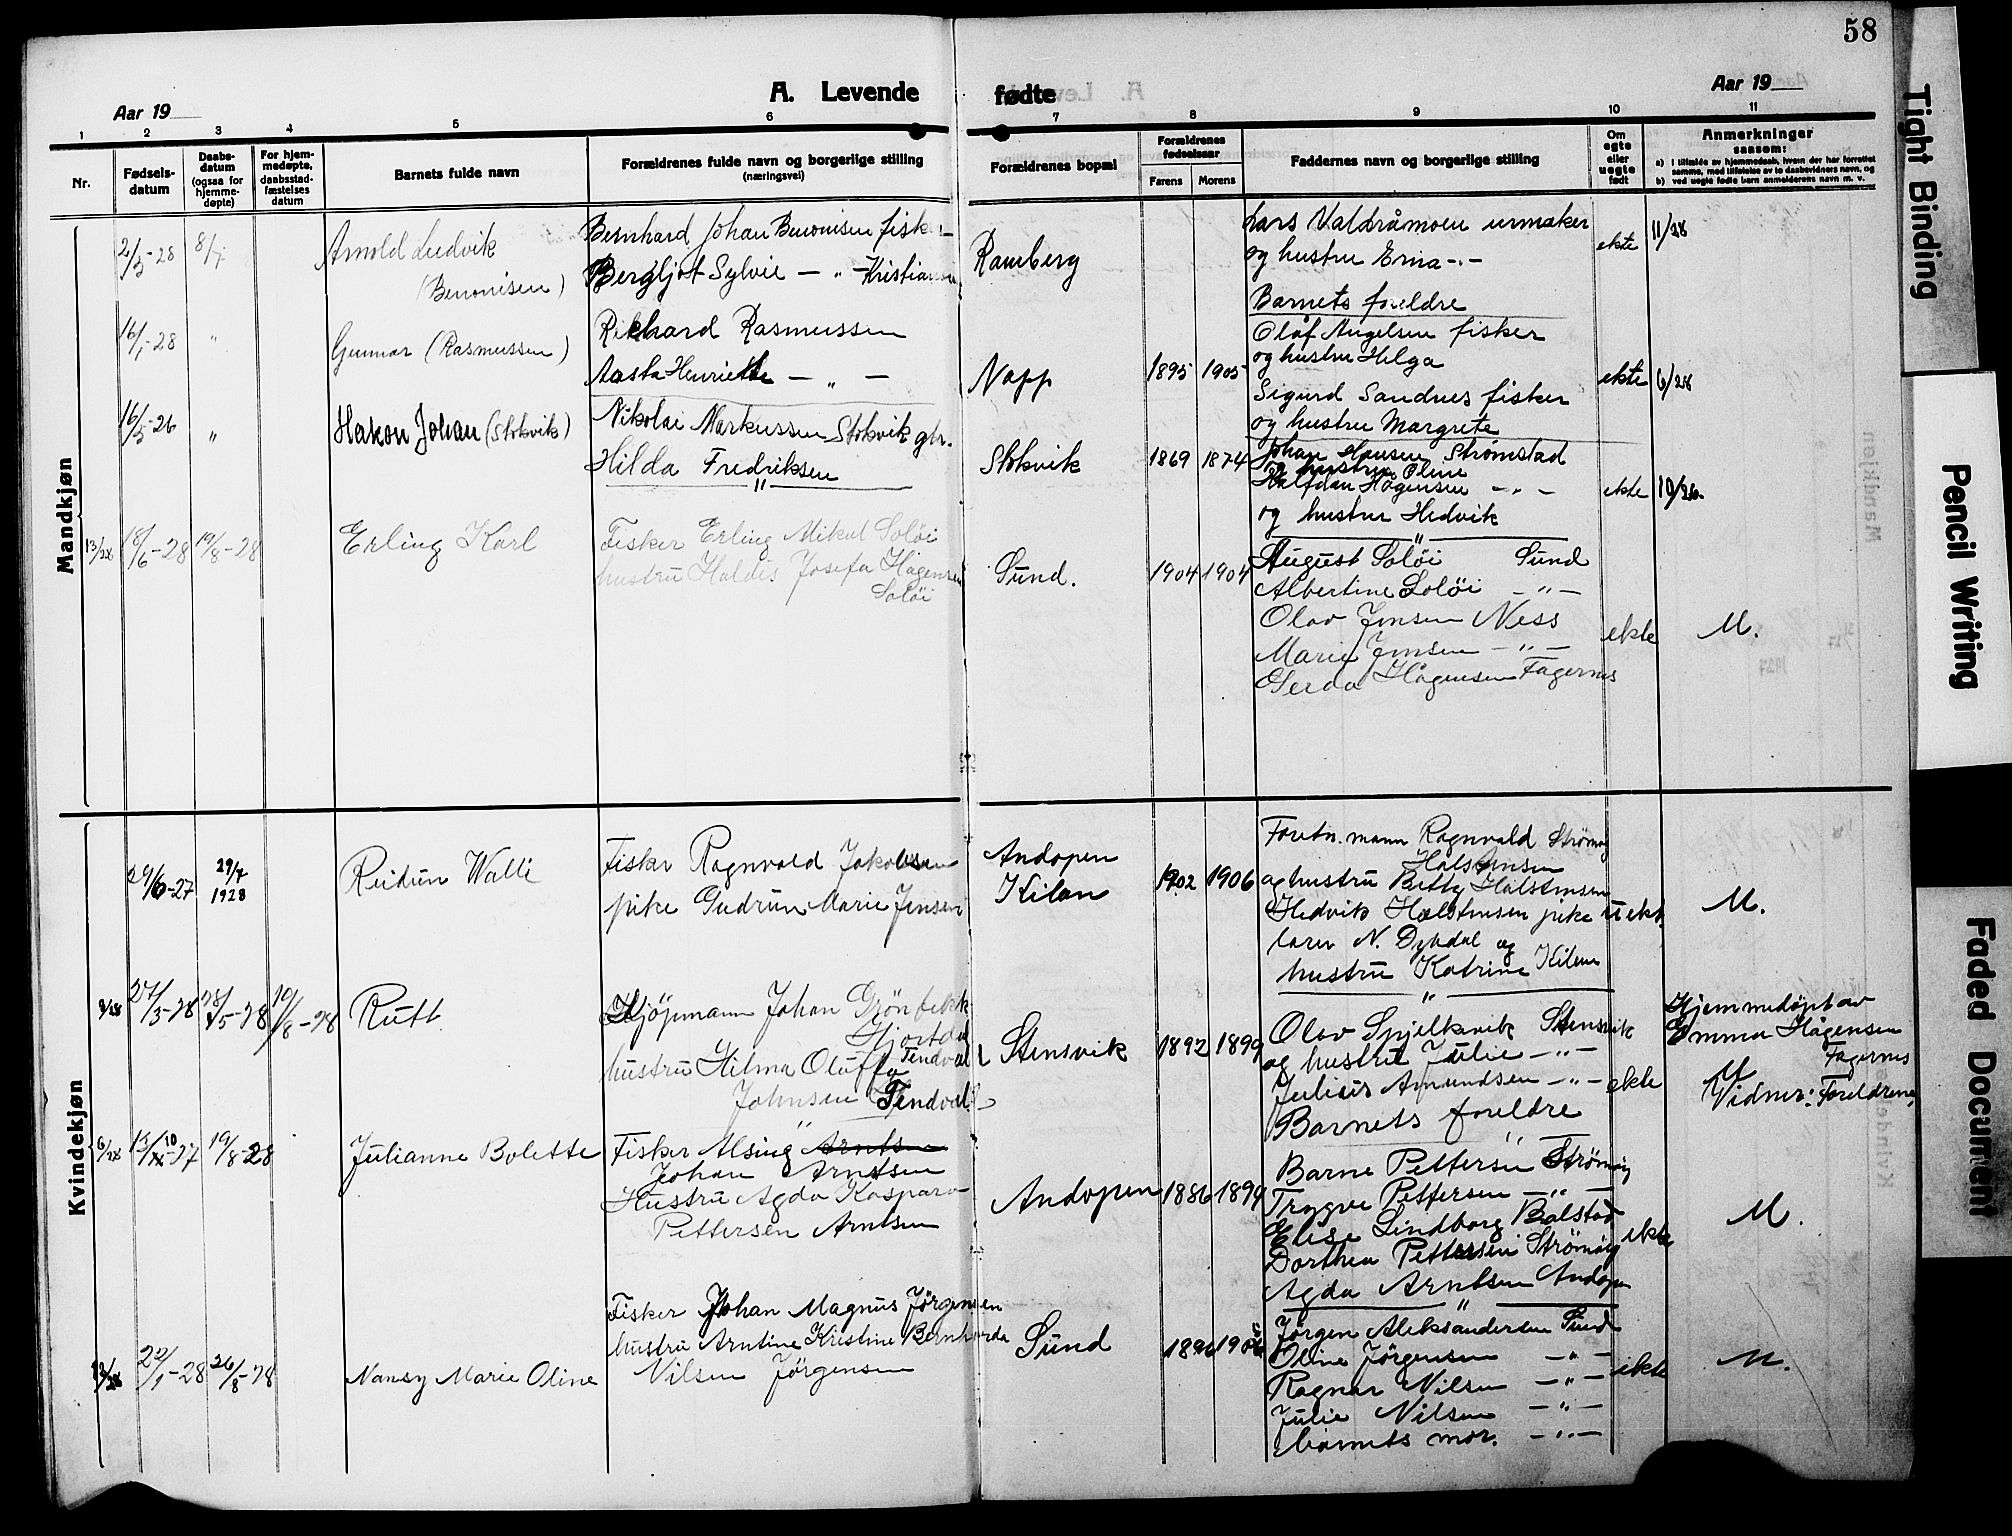 58
A. Levende fødte
Aar 19
Aar 19
1 2 3 4 5 6 7 8 9 10 11
Nr.
Fødsels-
datum
Daabs-
datum
(ogsaa for
hjemme-
døpte)
For hjem-
medøpte,
daabsstad-
fæstelses
datum
Barnets fulde navn
Forældrenes fulde navn og borgerlige stilling
(næringsvei)
Forældrenes bopæl
Forældrenes
fødselsaar
Farens Morens
Faddernes navn og borgerlige stilling
Om
egte
eller
uegte
født
Anmerkninger
saasom:
a) I tilfælde av hjemmedaab, hvem der har forrettet
samme, med tilføielse av to daabsvidners navn, og
b) ved uegte fødte barn anmelderens navn m. v.
Mandkjøn
2/3-28 8/7
Arnold Ludvik
(Benonisen)
Bernhard Johan Benonisen fisker
Bergljot Sylvie — " — Kristiansen
Ramberg
Lars Valdråmoen urmaker
og hustru Erna -"-
Barnets foreldre
ekte
11/28
16/1-28 "
Gunnar (Rasmussen)
Rikhard Rasmussen
Aasta Henriette — " —
Napp
1895 1905
Olaf Angelsen fisker
og hustru Helga
Sigurd Sandnes fisker
og hustru Margrete
ekte
6/28
16/5-26 "
Hakon Johan (Stokvik)
Nikolai Markussen Stokvik gbr.
Hilda Fredriksen
"
Stokvik
1869 1874
Johan Hansen Strømstad
og hustru Oline
Halfdan Hågensen -"-
og hustru Hedvik
"
ekte
10/26.
13/28
18/6-28 19/8-28
Erling Karl
Fisker Erling Mikal Soløi
hustru Haldis Josefa Hågensen
Soløi
Sund.
1904 1904
August Soløi Sund
Albertine Soløi -"-
Olav Jensen Ness
Marie Jensen -"-
Gerda Hågensen Fagernes
ekte
M.
Kvindekjøn
29/6-27
29/7
1928
Reidun Walli
Fisker Ragnvald Jakobsen
pike Gudrun Marie Jensen
Andopen
Kilan
1902 1906
Forretn. mann Ragnvald Strømøy
Halstensen
og hustru Betty Halstensen
Hedvik Halstensen pike
lærer N. Dykdal og
hustru Katrine Kilan
"
uekt.
M.
27/3-28 28/5-28 19/8-28
Rutt
Kjöpmann Johan Grönbekk
Hjortdal
hustru Hilma Oluffa Tendvall
Johnsen Tendvall
"
Stensvik
1892 1899
Olav Spjelkavik Stensvik
og hustru Julie -"-
Julius Amundsen -"-
Barnets foreldre
"
ekte
Hjemmedöpt av
Emma Hågensen
Fagernes
M
Vidner: Foreldrene
6/28
19/8-28
Julianne Bolette
Fisker Alsing Arntsen
Johan Arntsen
Hustru Agda Kaspara
Pettersen Arntsen
Andopen
1886 1899
Barne Pettersen Strömöy
Trygve Pettersen -"-
Elise Lindborg Balstad
Dorthea Pettersen Strömöy
Agda Arntsen Andopen
"
ekte
M.
22/1-28 26/8-28
Nansy Marie Oline
Fisker Johan Magnus Jörgensen
hustru Arntine Kristine Bernharda
Nilsen Jörgensen
Sund
1896
Jörgen Aleksandersen Sund
Oline Jörgensen -"-
Ragnar Nilsen -"-
Julie Nilsen -"-
Barnets mor. -"-
ekte
M.
Tight Binding
Pencil Writing
Faded Document